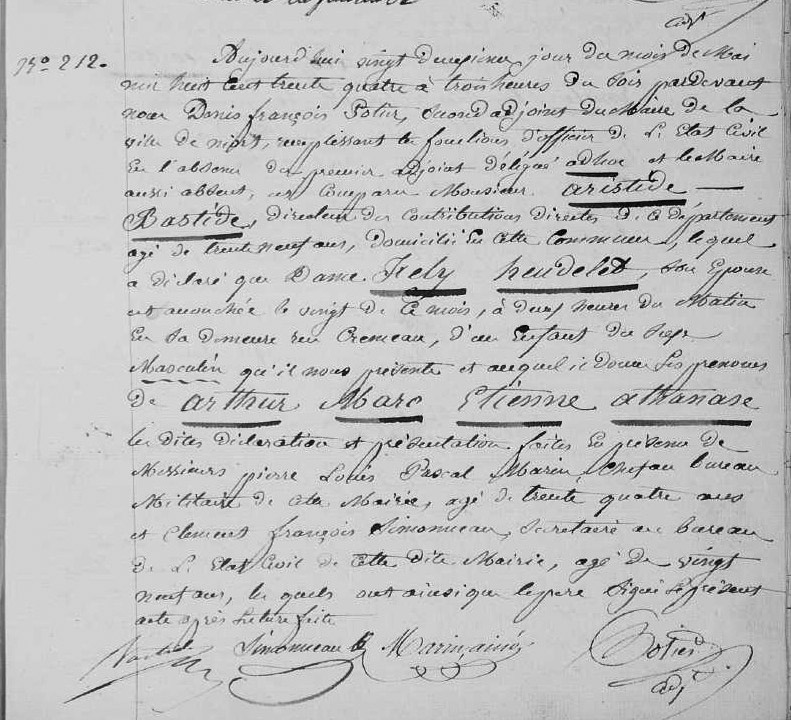 adj.
N.° 212.
Aujourd'hui vingt deuxieme jour du mois de Mai
mil huit cent trente quatre à trois heures du soir pardevant
nous Denis françois Potier, second adjoint du Maire de la
ville de niort, remplissant les fonctions d'officier de L'Etat Civil
En l'absence du premier adjoint délégué adhoc et le Maire
aussi absent, est Comparu Monsieur aristide
Bastide, directeur des Contributions Directes de ce département
agé de trente neuf ans, domicilié En cette Commune, lequel
a déclaré que Dame heudelet, son Epouse
est accouchée le vingt de ce mois, à deux heures du Matin
En sa demeure rue Cremeau, d'un Enfant du sexe
Masculin qu'il nous présente et auquel il donne les prénoms
de arthur Marc Etienne athanase
les dites déclaration et présentation faites En présence de
Messieurs pierre Louis Pascal Marin, Chef au bureau
Militaire de cette Mairie, agé de trente quatre ans
et Clement françois Simonneau, Secretaire au bureau
de L'Etat Civil de cette dite Mairie, agé de vingt
neuf ans, les quels ont ainsi que le pere signé le présent
acte après lecture faite
Simonneau Marin ainé Potier
adj.